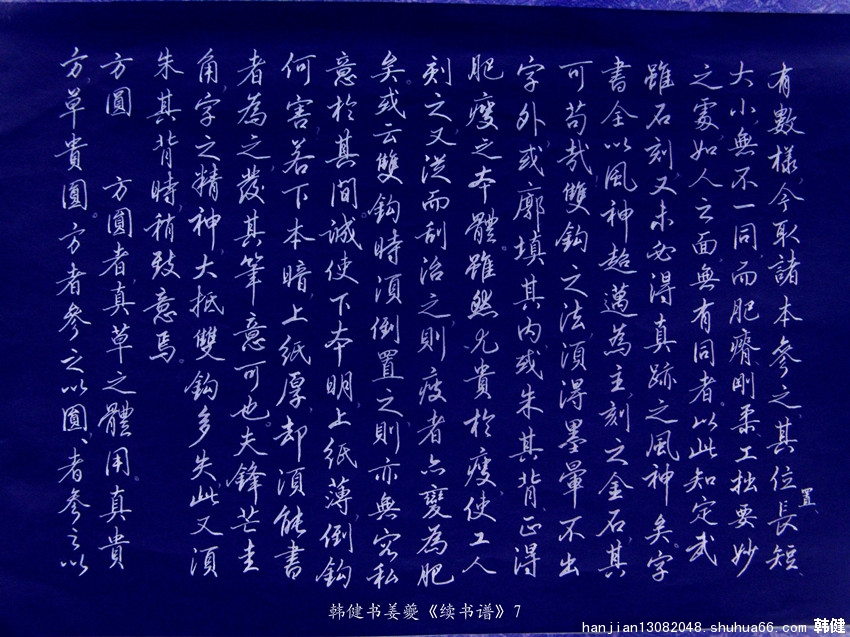 有數樣今取諸本參之其位置長短
大小無不一同而肥瘠剛柔工拙要妙
之處如人之面無有同者以此知定武
雖石刻又未必得真跡之風神矣字
書全以風神超邁為主刻之金石其
可苟哉雙鈎之法須得墨暈不出
字外或廓填其內或朱其背正得
肥瘦之本體雖然尤貴於瘦使工人
刻之又從而刮治之則瘦者亦變為肥
矣或云雙鈎時須倒置之則亦無容私
意於其間誠使下本明上紙薄倒鈎
何害若下本暗上紙厚却須能書
者為之發其筆意可也夫鋒芒圭
角字之精神大抵雙鈎多失此又須
朱其背時稍致意焉
方圓 方圓者真草之體用真貴
方草貴圓方者參之以圓、者參之以
韩健书姜夔《续书谱》7
hanjian13082048.shuhua66.com 韩健